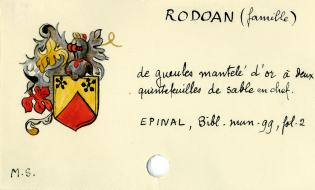 RODOAN (famille)
de gueules mantelé d'or à deux
quintefeuilles de sable en chef.
EPINAL, Bibl. mun. 99, fol. 2
M.S.